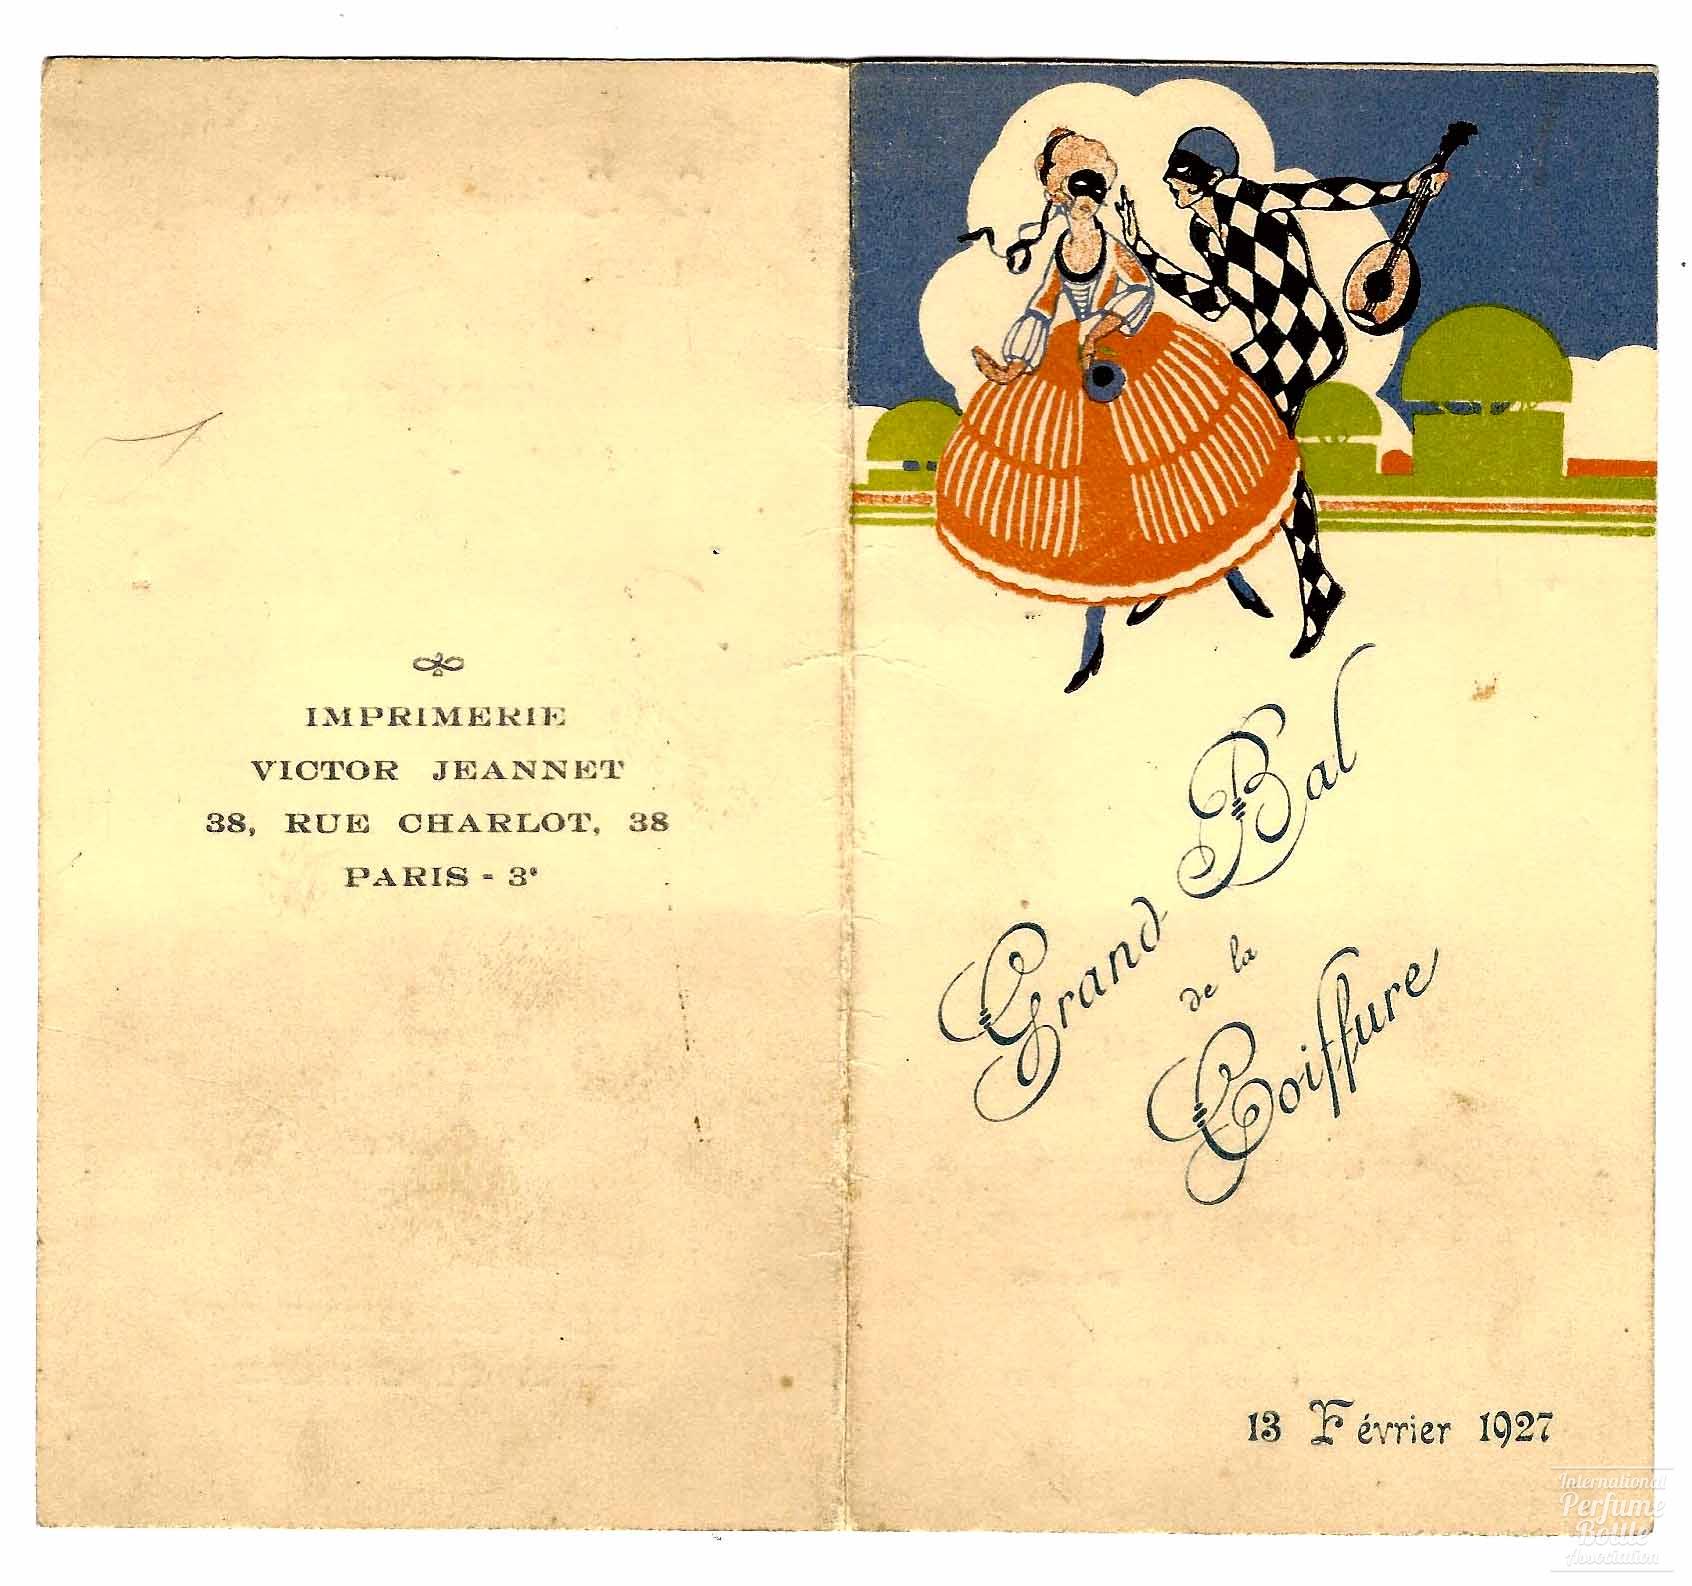 IMPRIMERIE
VICTOR JEANNET
38, RUE CHARLOT, 38
PARIS - 3e
Grand Bal
de la
Coiffure
13 Février 1927
International
Perfume
Bottle
Association